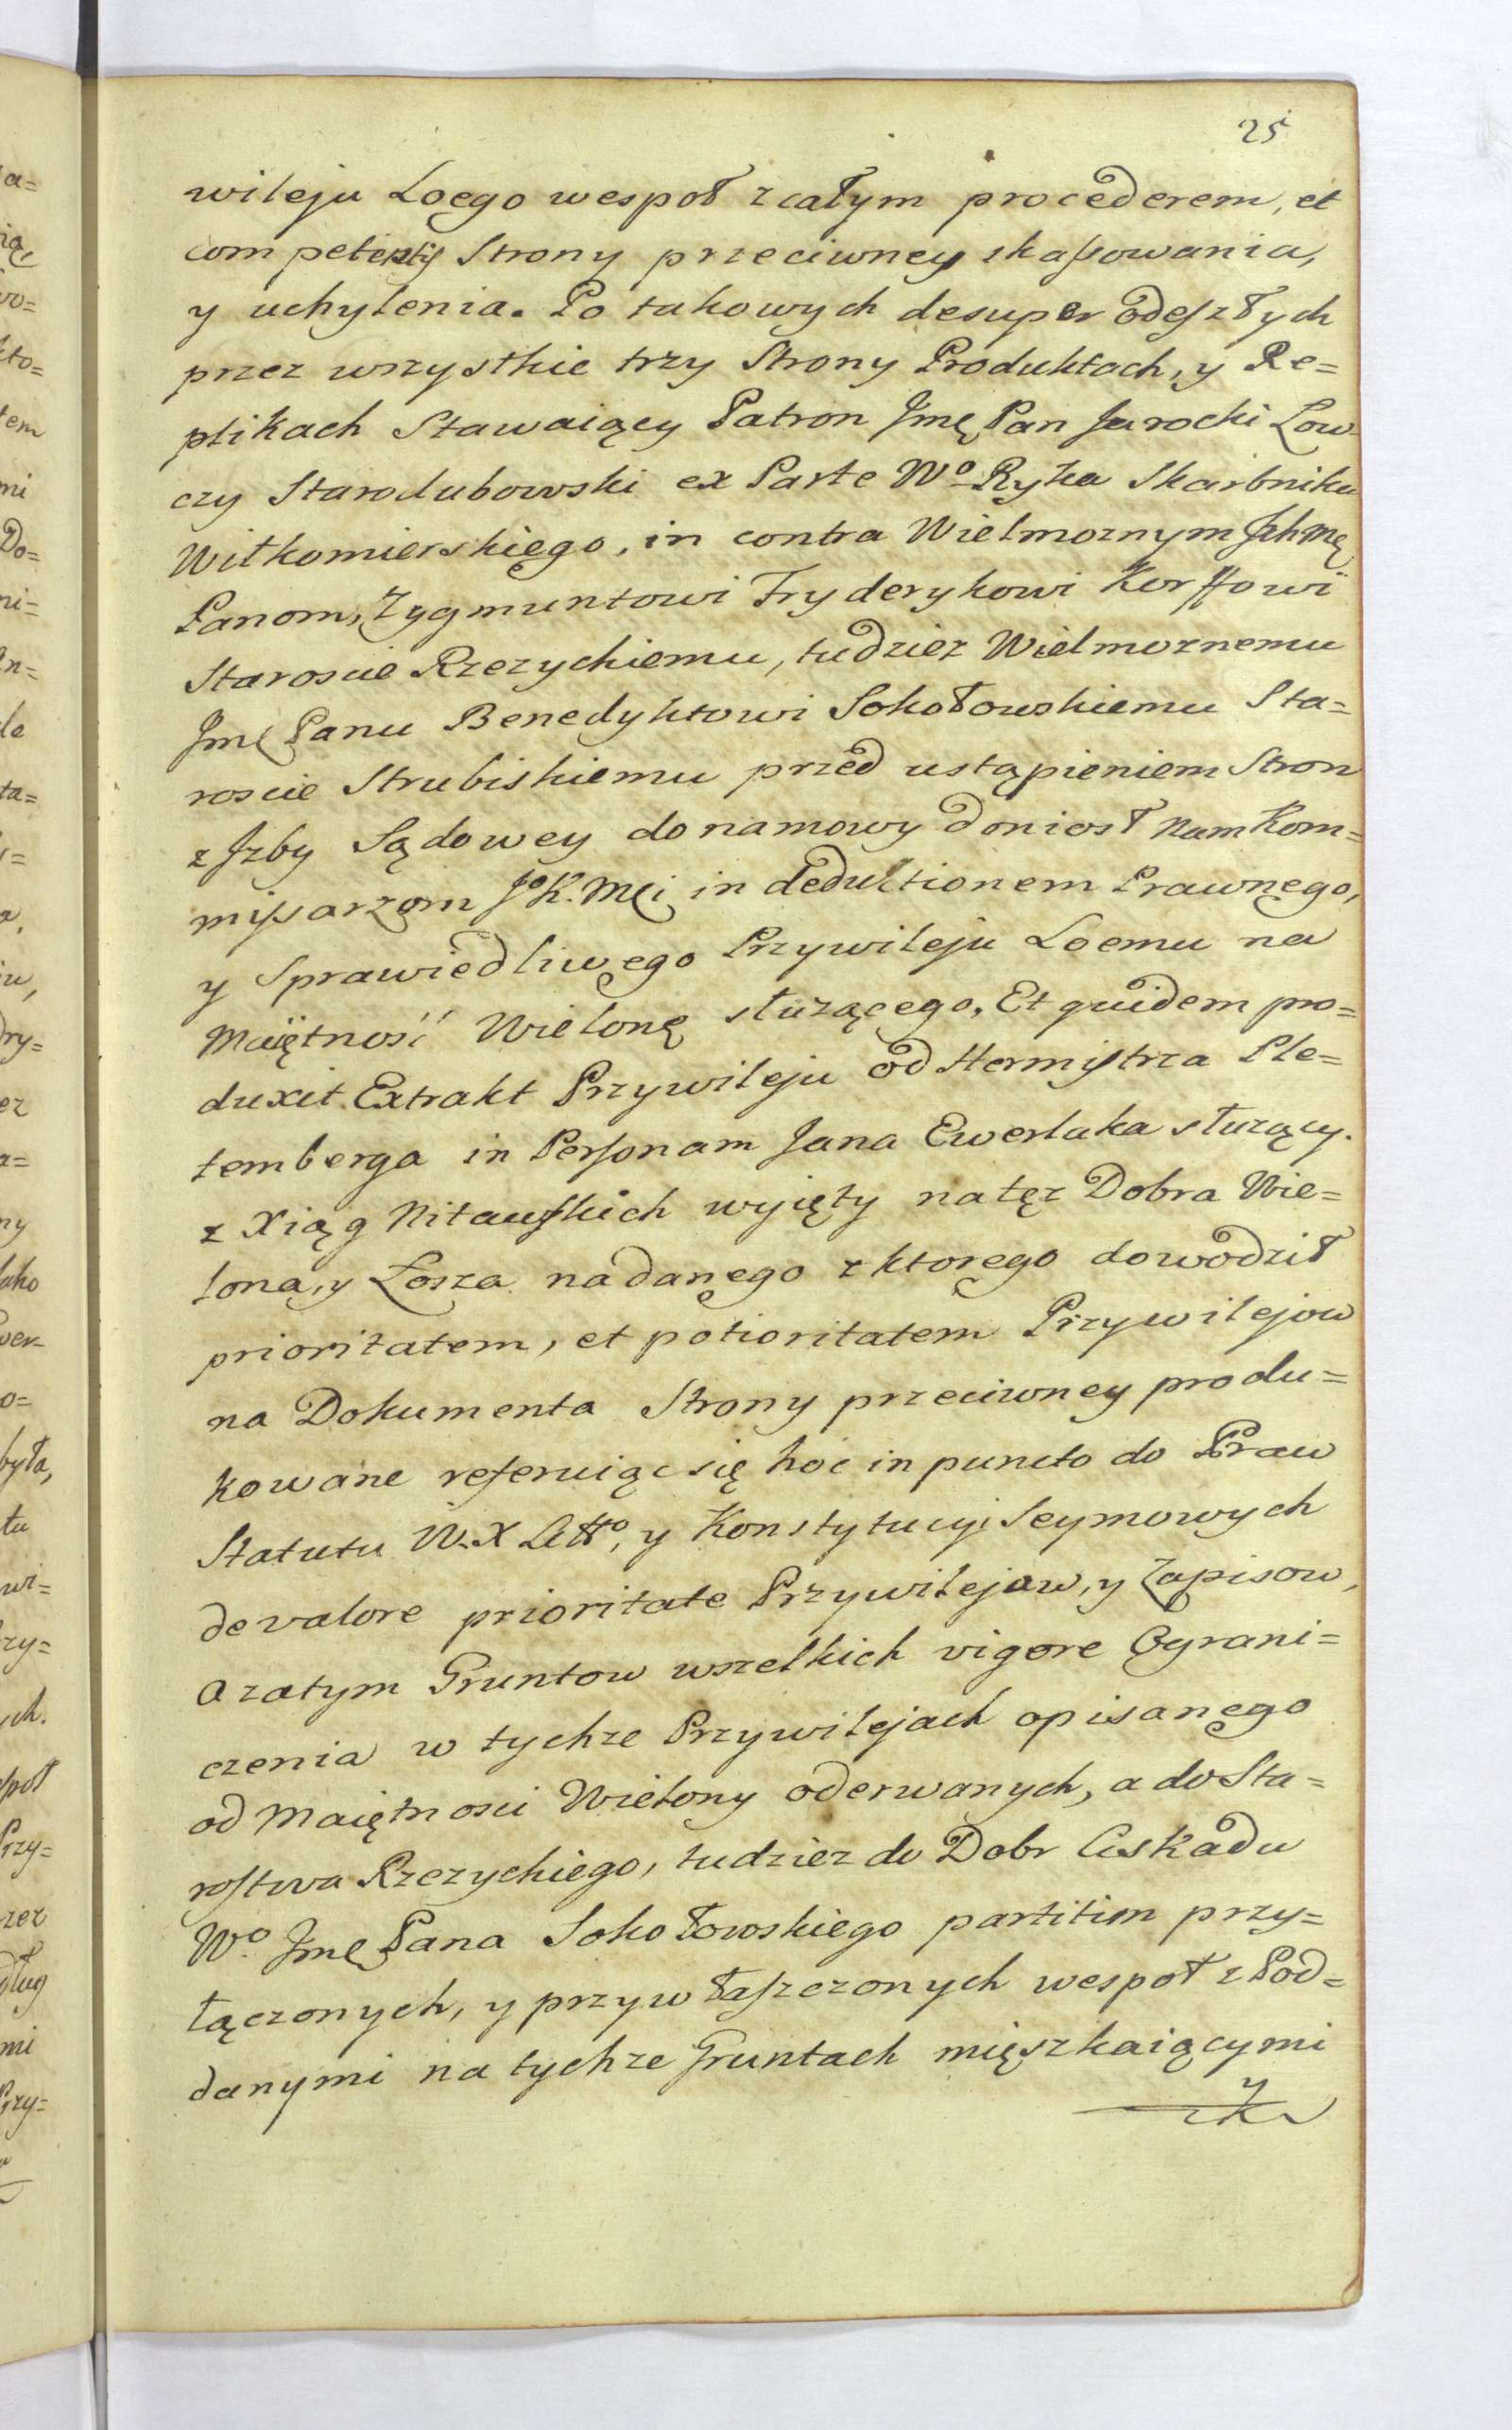 25
wileju Loego wespoł z całym procederem, et
competentij Strony przeciwney skassowania,
y uchylenia. Po takowych desuper odeszłych
przez wszystkie trzy Strony Produktach, y Re=
plikach Stawaiący Patron Jmę Pan Jarocki Low
czy Starodubowski ex Parte Wo Ryka Skarbnika
Wiłkomierskięgo, in contra Wielmoznym Ichmę
Panom, Zygmuntowi Fryderykowi Korffowi
Staroscie Rzezyckiemu, tudziez Wielmoznemu
Jmę Panu Benedyktowi Sokołowskiemu Sta=
roscie Strubiskiemu przed ustąpieniem Stron
z Jzby Sądowey do namowy doniosł Nam Kom=
missarzom Jo K. Mci in deductionem Prawnęgo,
y Sprawiedliwęgo Przywileju Loemu na
Maiętnosć Wielonę służącęgo, Et quidem pro=
duxit Extrakt Przywileju od Hermistrza Ple=
temberga in Personam Jana Ewerlaka służący.
z Xiąg Nitauskich wyięty na tęz Dobra Wie=
loną, y Łosza nadanęgo z ktoręgo dowodził
prioritatem, et potioritatem Przywilejow
na Dokumenta Strony przeciwney produ=
kowane referuiąc się hoc in puncto do Praw
Statutu W. X Litto, y Konstytucyi Seymowych
de valore prioritate Przywilejow, y Zapisow,
a zatym Gruntow wszelkich vigore Ograni=
czenia w tychze Przywilejach opisanęgo
od Maiętnosci Wielony oderwanych, a do Sta=
rostwa Rzezyckiego, tudziez do Dobr Ciskadu
Wo. Jmę Pana Sokołowskiego partitim przy=
łączonych, y przywłaszczonych wespoł z Pod=
danymi na tychze Gruntach mięszkaiącymi
y